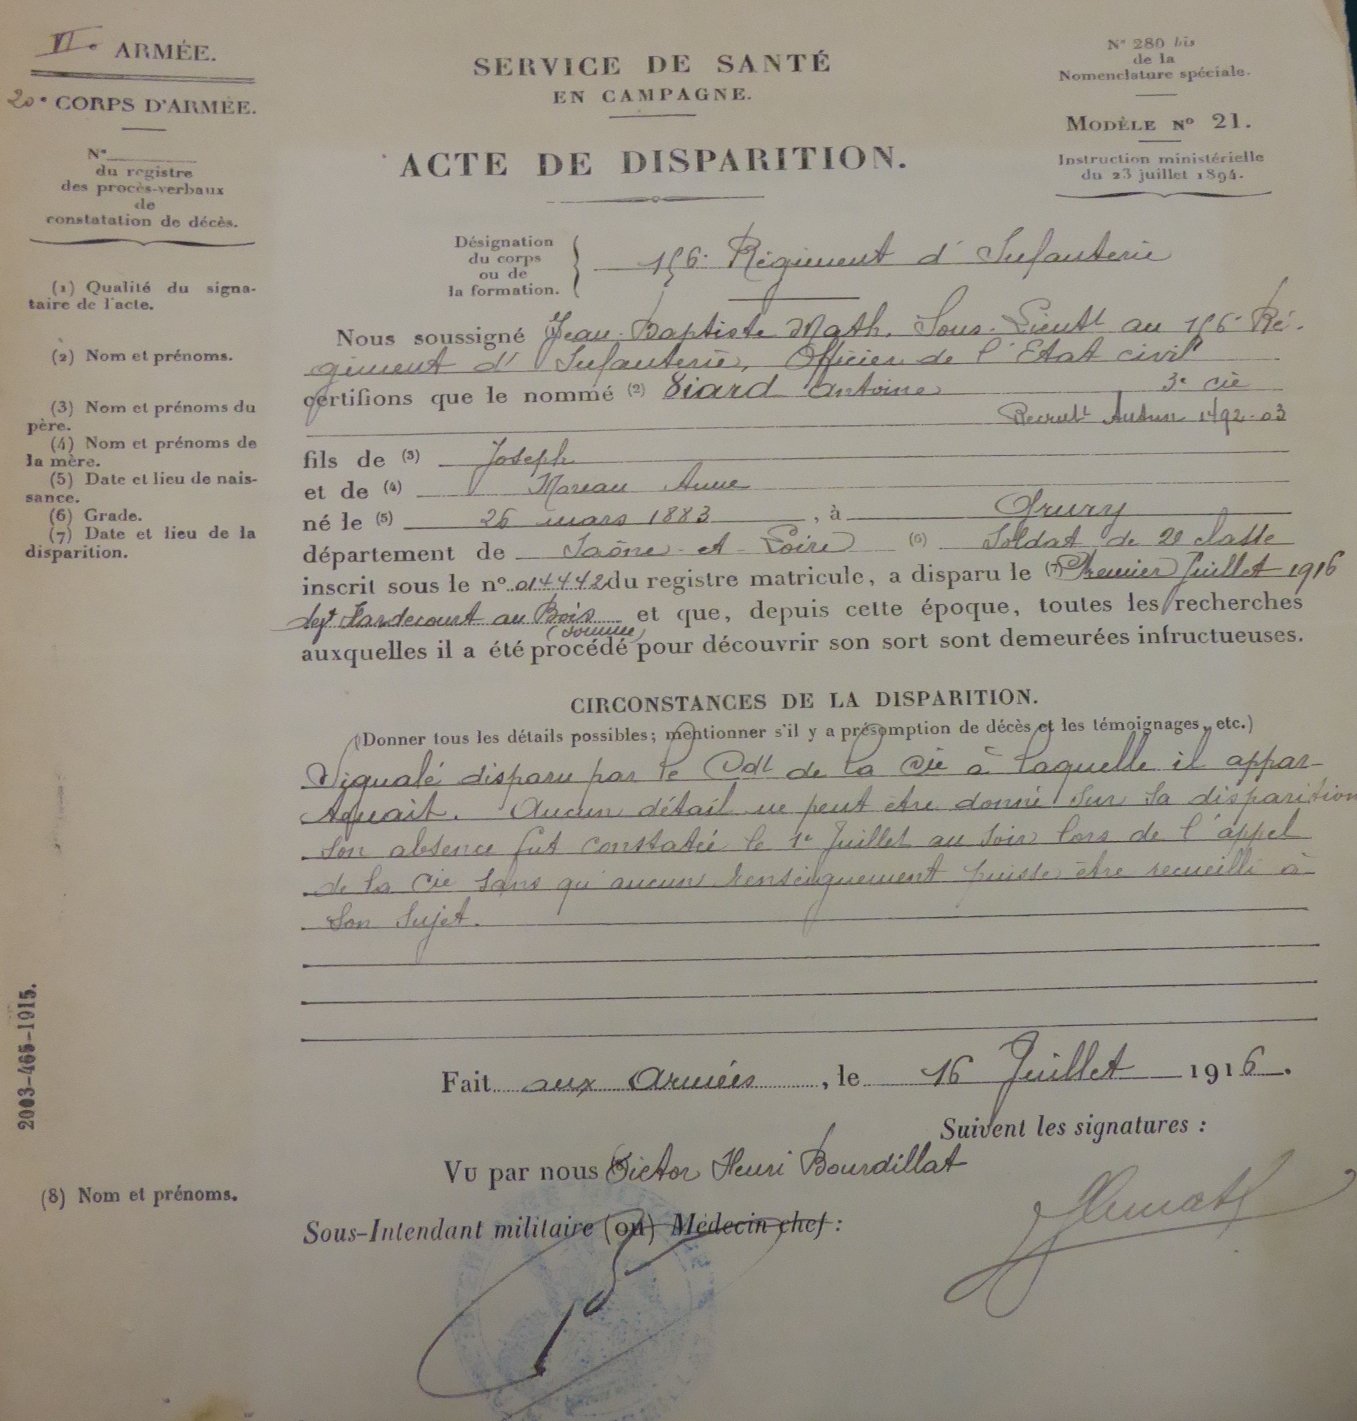 VIe ARMÉE.
20e CORPS D'ARMÉE.
N°
du registre
des procès-verbaux
de
constatation de décès.
SERVICE DE SANTÉ
EN CAMPAGNE.
ACTE DE DISPARITION.
N° 280 bis
de la
Nomenclature spéciale.
MODÈLE N° 21.
Instruction ministérielle
du 23 juillet 1894.
Désignation
du corps
ou de
la formation.
156e Régiment d'Infanterie
(1) Qualité du signa-
taire de l'acte.
(2) Nom et prénoms.
(3) Nom et prénoms du
père.
(4) Nom et prénoms de
la mère.
(5) Date et lieu de nais-
sance.
(6) Grade.
(7) Date et lieu de la
disparition.
Nous soussigné (1) Jean-Baptiste Math. Sous-Lieutt au 156e Ré-
giment d'Infanterie, Officier de l'Etat civil
certifions que le nommé (2) Viard Antoine 3e Cie
Recrutt Autun 1492-03
fils de (3) Joseph
et de (4) Moreau Anne
né le (5) 26 mars 1883, à Grury
département de Saône-et-Loire (6) Soldat de 2e classe
inscrit sous le n° 014442 du registre matricule, a disparu le (7) Premier Juillet 1916
devt Hardecourt au Bois et que, depuis cette époque, toutes les recherches
(Somme)
auxquelles il a été procédé pour découvrir son sort sont demeurées infructueuses.
CIRCONSTANCES DE LA DISPARITION.
(Donner tous les détails possibles; mentionner s'il y a présomption de décès et les témoignages, etc.)
Signalé disparu par le Cdt de la Cie à laquelle il appar-
tenait. Aucun détail ne peut être donné sur sa disparition
son absence fut constatée le 1e Juillet au soir lors de l'appel
de la Cie sans qu'aucun renseignement puisse être recueilli à
son sujet.
2003-465-1915.
Fait aux Armées, le 16 Juillet 1916.
Suivent les signatures :
Vu par nous (8) Victor Henri Bourdillat
(8) Nom et prénoms.
Sous-Intendant militaire (ou) Médecin chef :